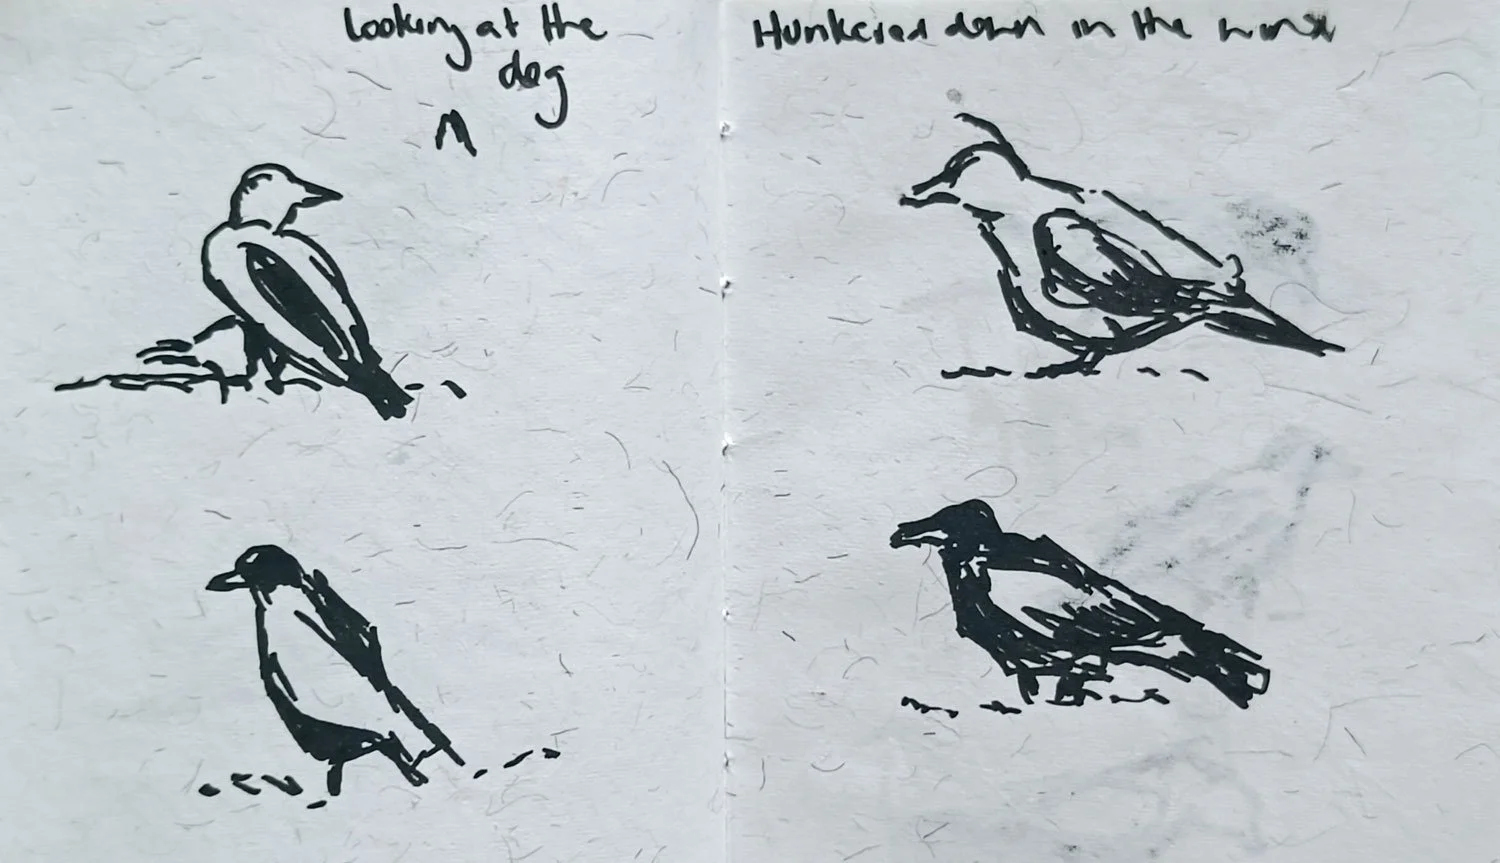 Looking at the
dog
Hunkered down in the wind